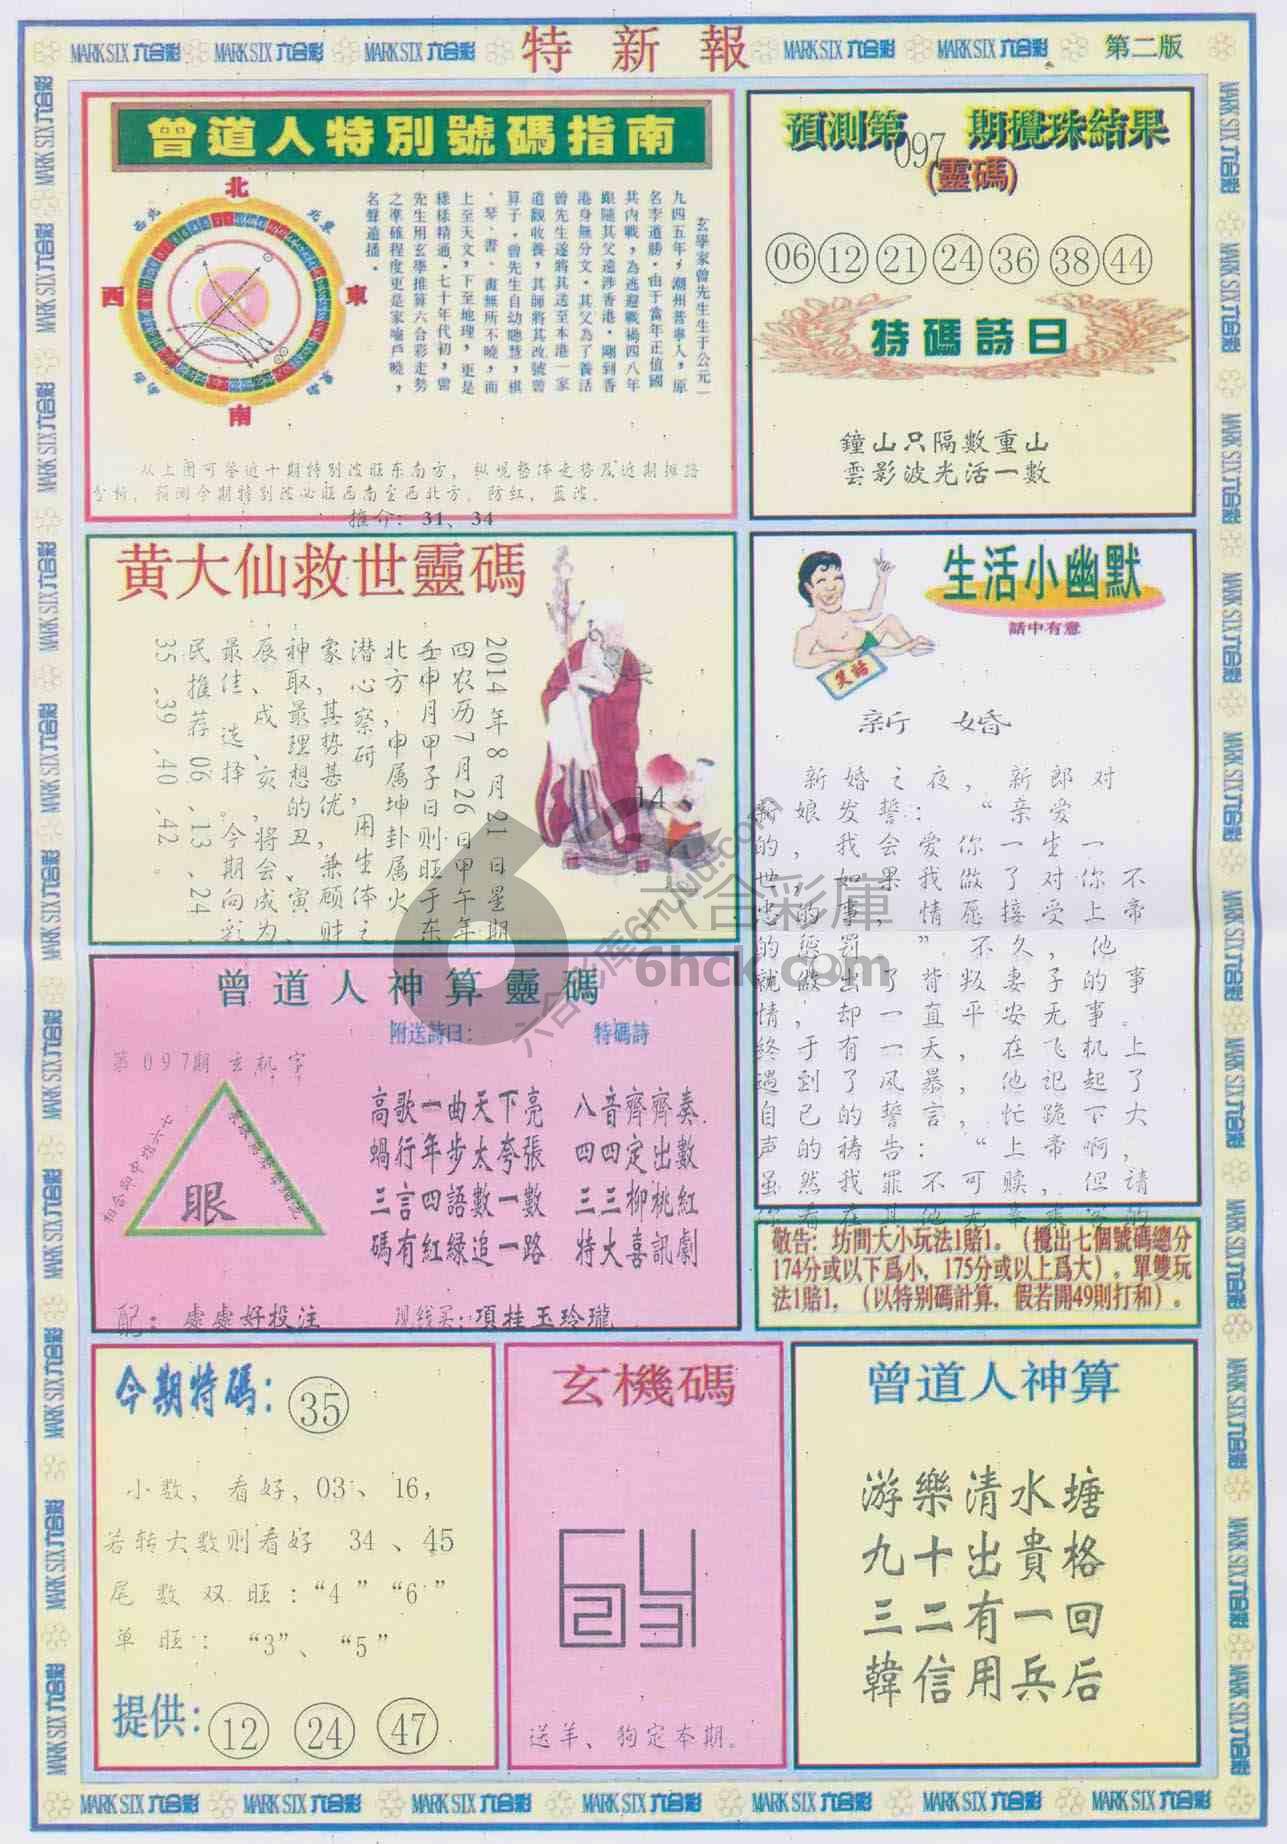 MARK SIX 六合彩 MARK SIX 六合彩 MARK SIX 六合彩 特新報 MARK SIX 六合彩 MARK SIX 六合彩 第二版
曾道人特別號碼指南
北
東
西
南
玄學家曾先生生于公元一
九四五年，潮州普寧人，原
名李道勝。由于當年正值國
共內戰，為逃避戰禍四八年
跟隨其父遠涉香港。剛到香
港身無分文。其父為了養活
曾先生遂將其送至本港一家
道觀收養，其師將其改號曾
算子。曾先生自幼聰慧，棋
、琴、書、畫無所不曉，而
上至天文，下至地理，更是
樣樣精通。七十年代初，曾
先生用玄學推算六合彩走勢
之準確程度更是家喻戶曉，
名聲遠播。
从上图可鉴近十期特别波旺东南方，纵观整体走势及近期推路
分析，预测今期特别波必旺西南至西北方。防红，蓝波。
推介：31、34
預測第097期攪珠結果
(靈碼)
06 12 21 24 36 38 44
特碼詩曰
鐘山只隔數重山
雲影波光活一數
黄大仙救世靈碼
2014年8月21日星期
四农历7月26日甲午年
壬申月甲子日则旺于东
北方，申属坤卦属火，
潜心察研，用生体之
象，其势甚优，兼顾财
神取最理想的丑、寅、
辰、戌、亥，将会成为
最佳选择。今期向彩
民推荐06、13、24、
35、39、40、42。
14
生活小幽默
話中有意
笑話
新婚
新婚之夜，新郎对
新娘发誓：“亲爱
的，我会爱你一生一
世，如果我做了对你不
忠的事，情愿接受上帝
的惩罚。”不久，他
就做出了背叛妻子的事
情，却一直平安无事。
终于有一天，在飞机上
遇到了风暴，他记起了
自己的誓言，忙跪下大
声的祷告：“上帝啊，
虽然我罪不可赎，但请
六合彩庫
6hck.com
曾道人神算靈碼
附送詩曰： 特碼詩
第097期 玄机字
相合如中指六七
眼
高歌一曲天下亮 八音齊齊奏
蝸行年步太夸張 四四定出數
三言四語數一數 三三柳桃紅
碼有紅緑追一路 特大喜訊劇
配：處處好投注 现钱买：項挂玉玲瓏
敬告：坊間大小玩法1賠1。（攪出七個號碼總分
174分或以下爲小，175分或以上爲大），單雙玩
法1賠1，（以特別碼計算，假若開49則打和）。
今期特碼：35
小数、看好，03、16，
若转大数则看好 34、45
尾数双旺：“4”“6”
单旺：“3”、“5”
提供：12 24 47
玄機碼
送羊、狗定本期。
曾道人神算
游樂清水塘
九十出貴格
三二有一回
韓信用兵后
MARK SIX 六合彩 MARK SIX 六合彩 MARK SIX 六合彩 MARK SIX 六合彩 MARK SIX 六合彩 MARK SIX 六合彩 MARK SIX 六合彩